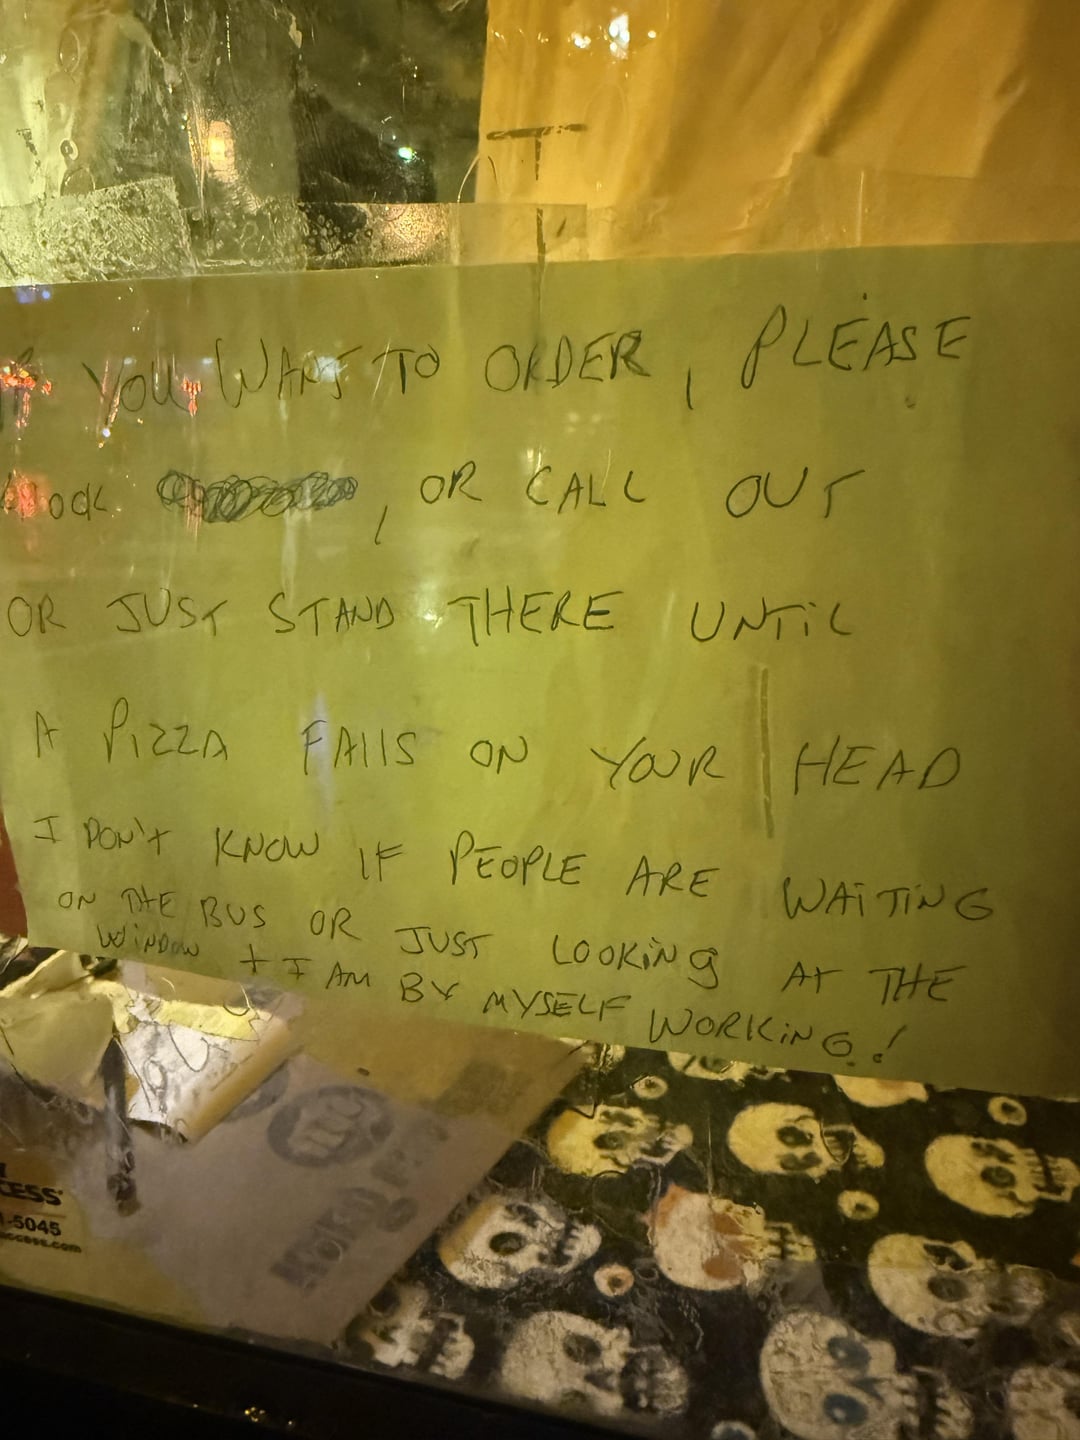 IF YOU WANT TO ORDER, PLEASE
knock , OR CALL OUT
OR JUST STAND THERE UNTiL
A PiZZA FAllS ON YOUR HEAD
I DON'T KNOW IF PEOPLE ARE WAiTiNG
ON THE BUS OR JUST LOOKiNg AT THE
WiNDOW + I AM BY MYSELF WORKiNG!
CESS
-5045
access.com